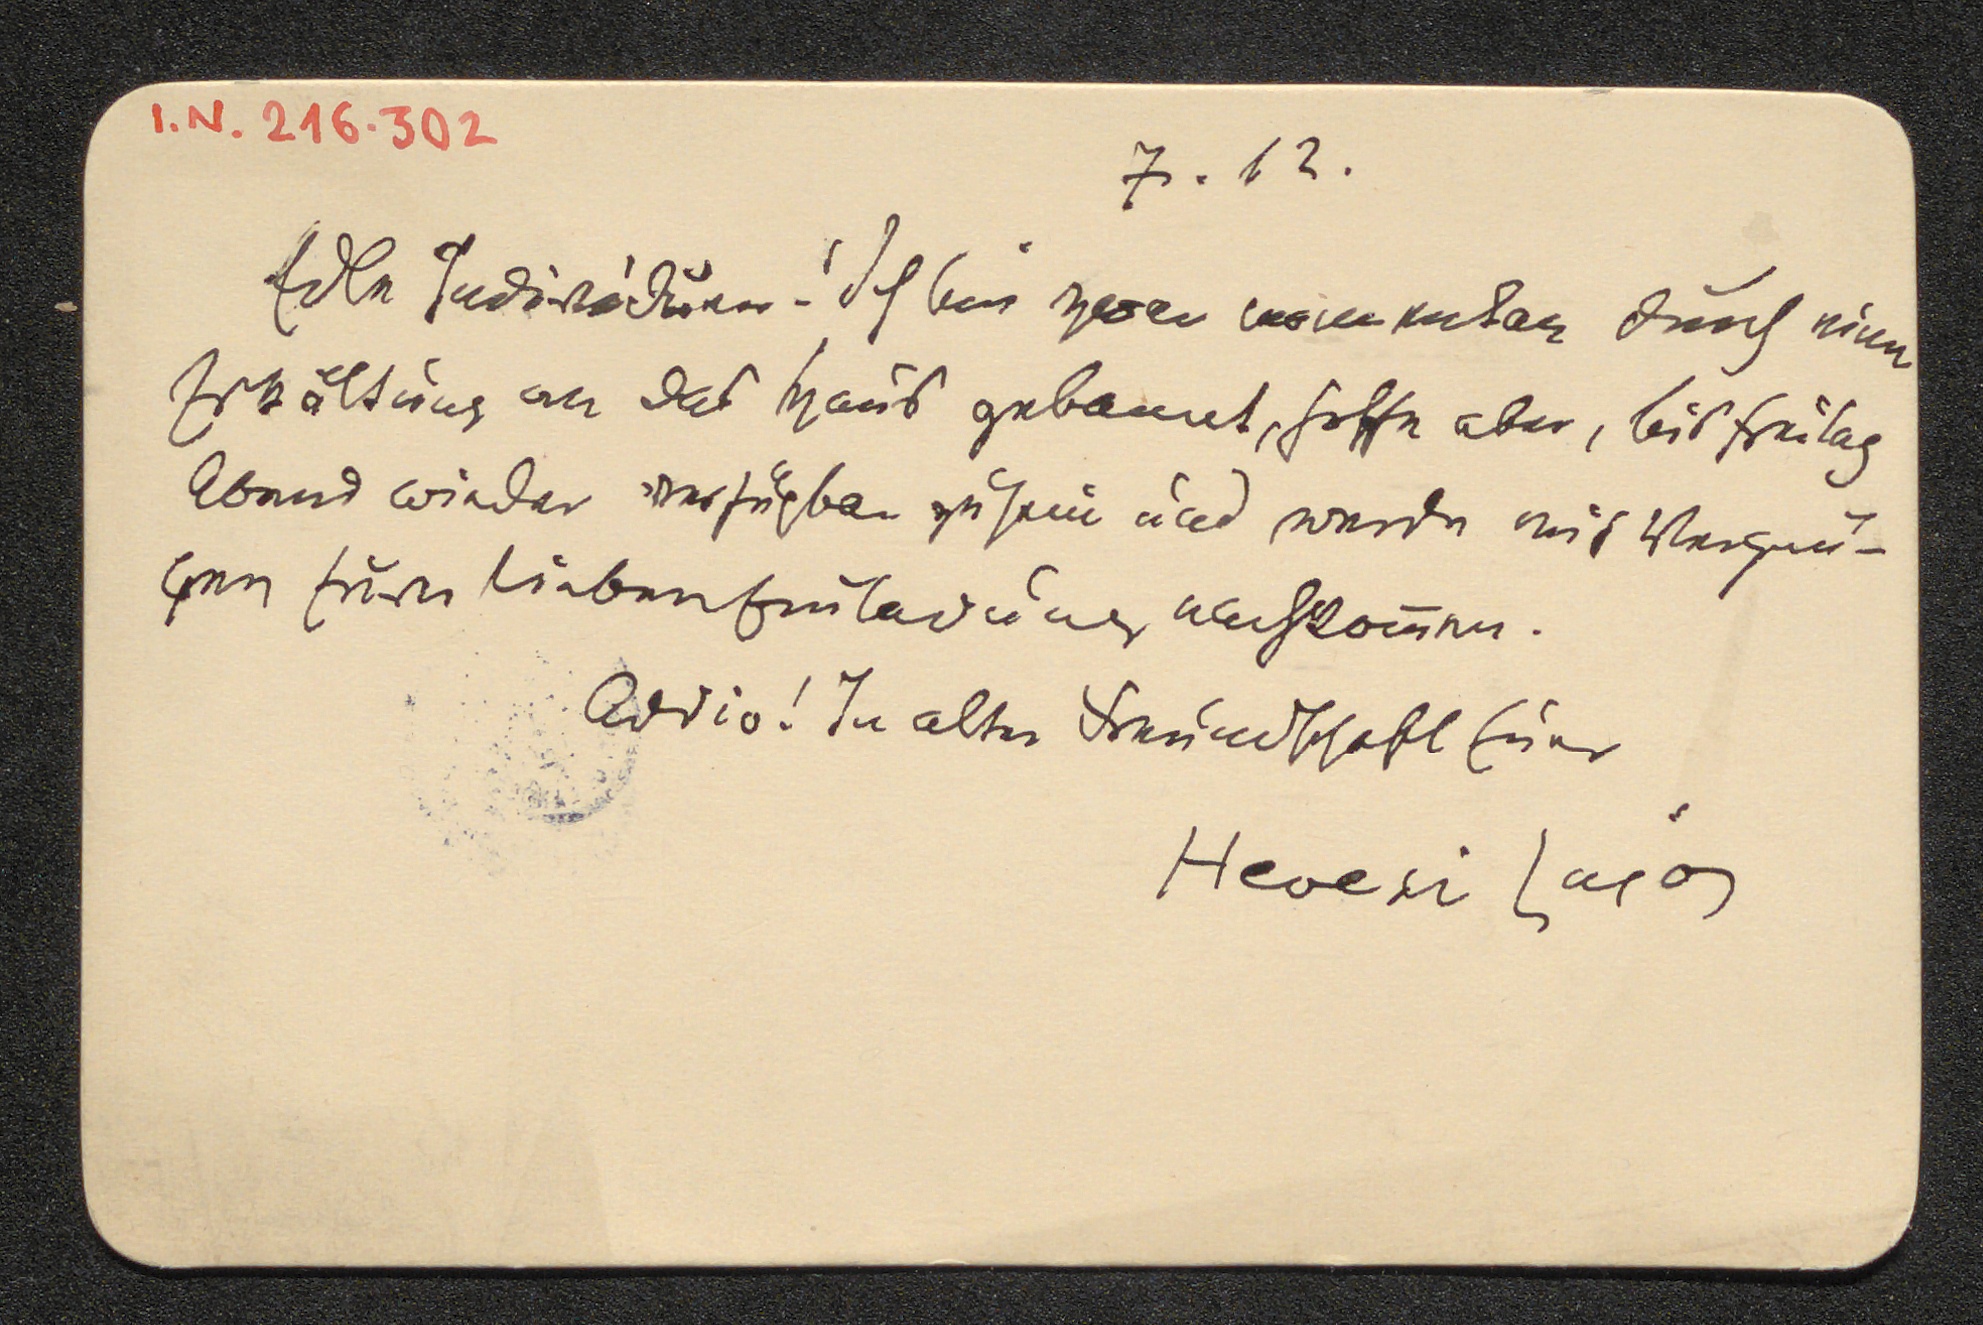 I.N. 216.302
7. 12.
Edle Individuen! Ich bin zwar momentan durch eine
Erkältung an das Haus gebannt, hoffe aber, bis Freitag
Abend wieder verfügbar zu sein und werde mit Vergnü-
gen Eurer lieben Einladung nachkommen.
Addio! In alter Freundschaft Euer
Hevesi Lajos